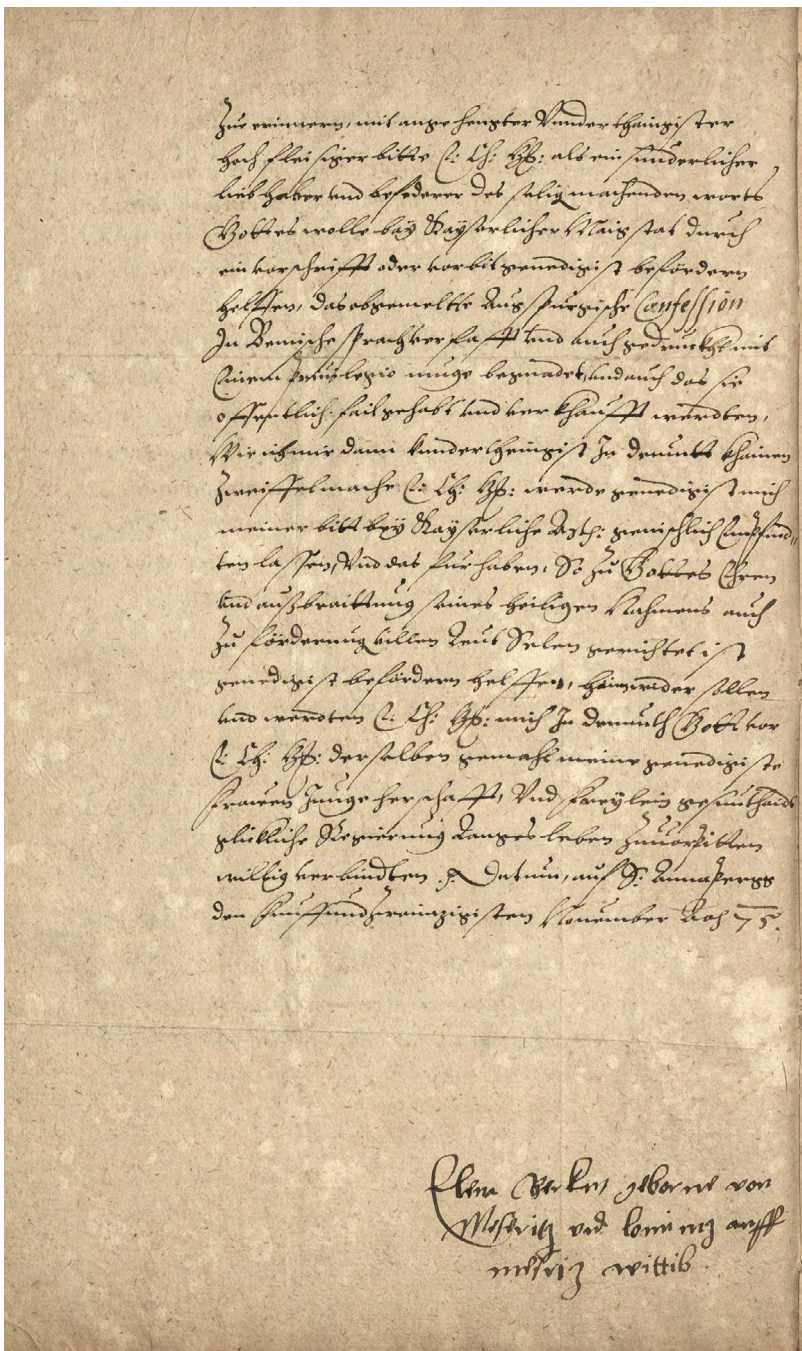 Zue erinnern, mit angehengter Vnderthänigister
hoch fleisiger bitte E: Ch: G: als ein sünderlicher
liebhaber vnd befederer des selig machenden worts
Gottes wolle bey Kayserlicher Maigstat durch
ein vorschrifft oder vorbit genedigist befördern
helffen, das obgemeltte Augspurgische Confession
In Bemische sprach verfasst vnd auch gedruckht mit
Einem priuilegio muge begnadet, vnd auch das sie
offentlich fail gehabt vnd verkhaufft werdten,
Wie ich mir dann vnderthenigist In demutt khainen
zweiffel mache E: Ch: G: werde genedigist mich
meiner bitt bey Kayserliche Mgth: genislich Empfind=
ten lassen, Vnd das furhaben, So zu Gottes Ehren
vnd außbraittung seines heiligen Nahmens auch
zu förderung villen Leut Selen gerichtet ist
genedigist befördern helffen, hinwider sollen
vnd werdten E: Ch: G: mich In demuth Gott vor
E: Ch: G: derselben gemahl meine genedigiste
frauen Junge herschafft, Vnd freylein gesunthaidt
glickliche Regierung Langes leben Zuuorpitten
willig verbindten. Datum, auf S: Annaperg
den funffundzwainzigisten Nouember Im 75.
geborne von
Meseritz vnd auff
meseritz wittib